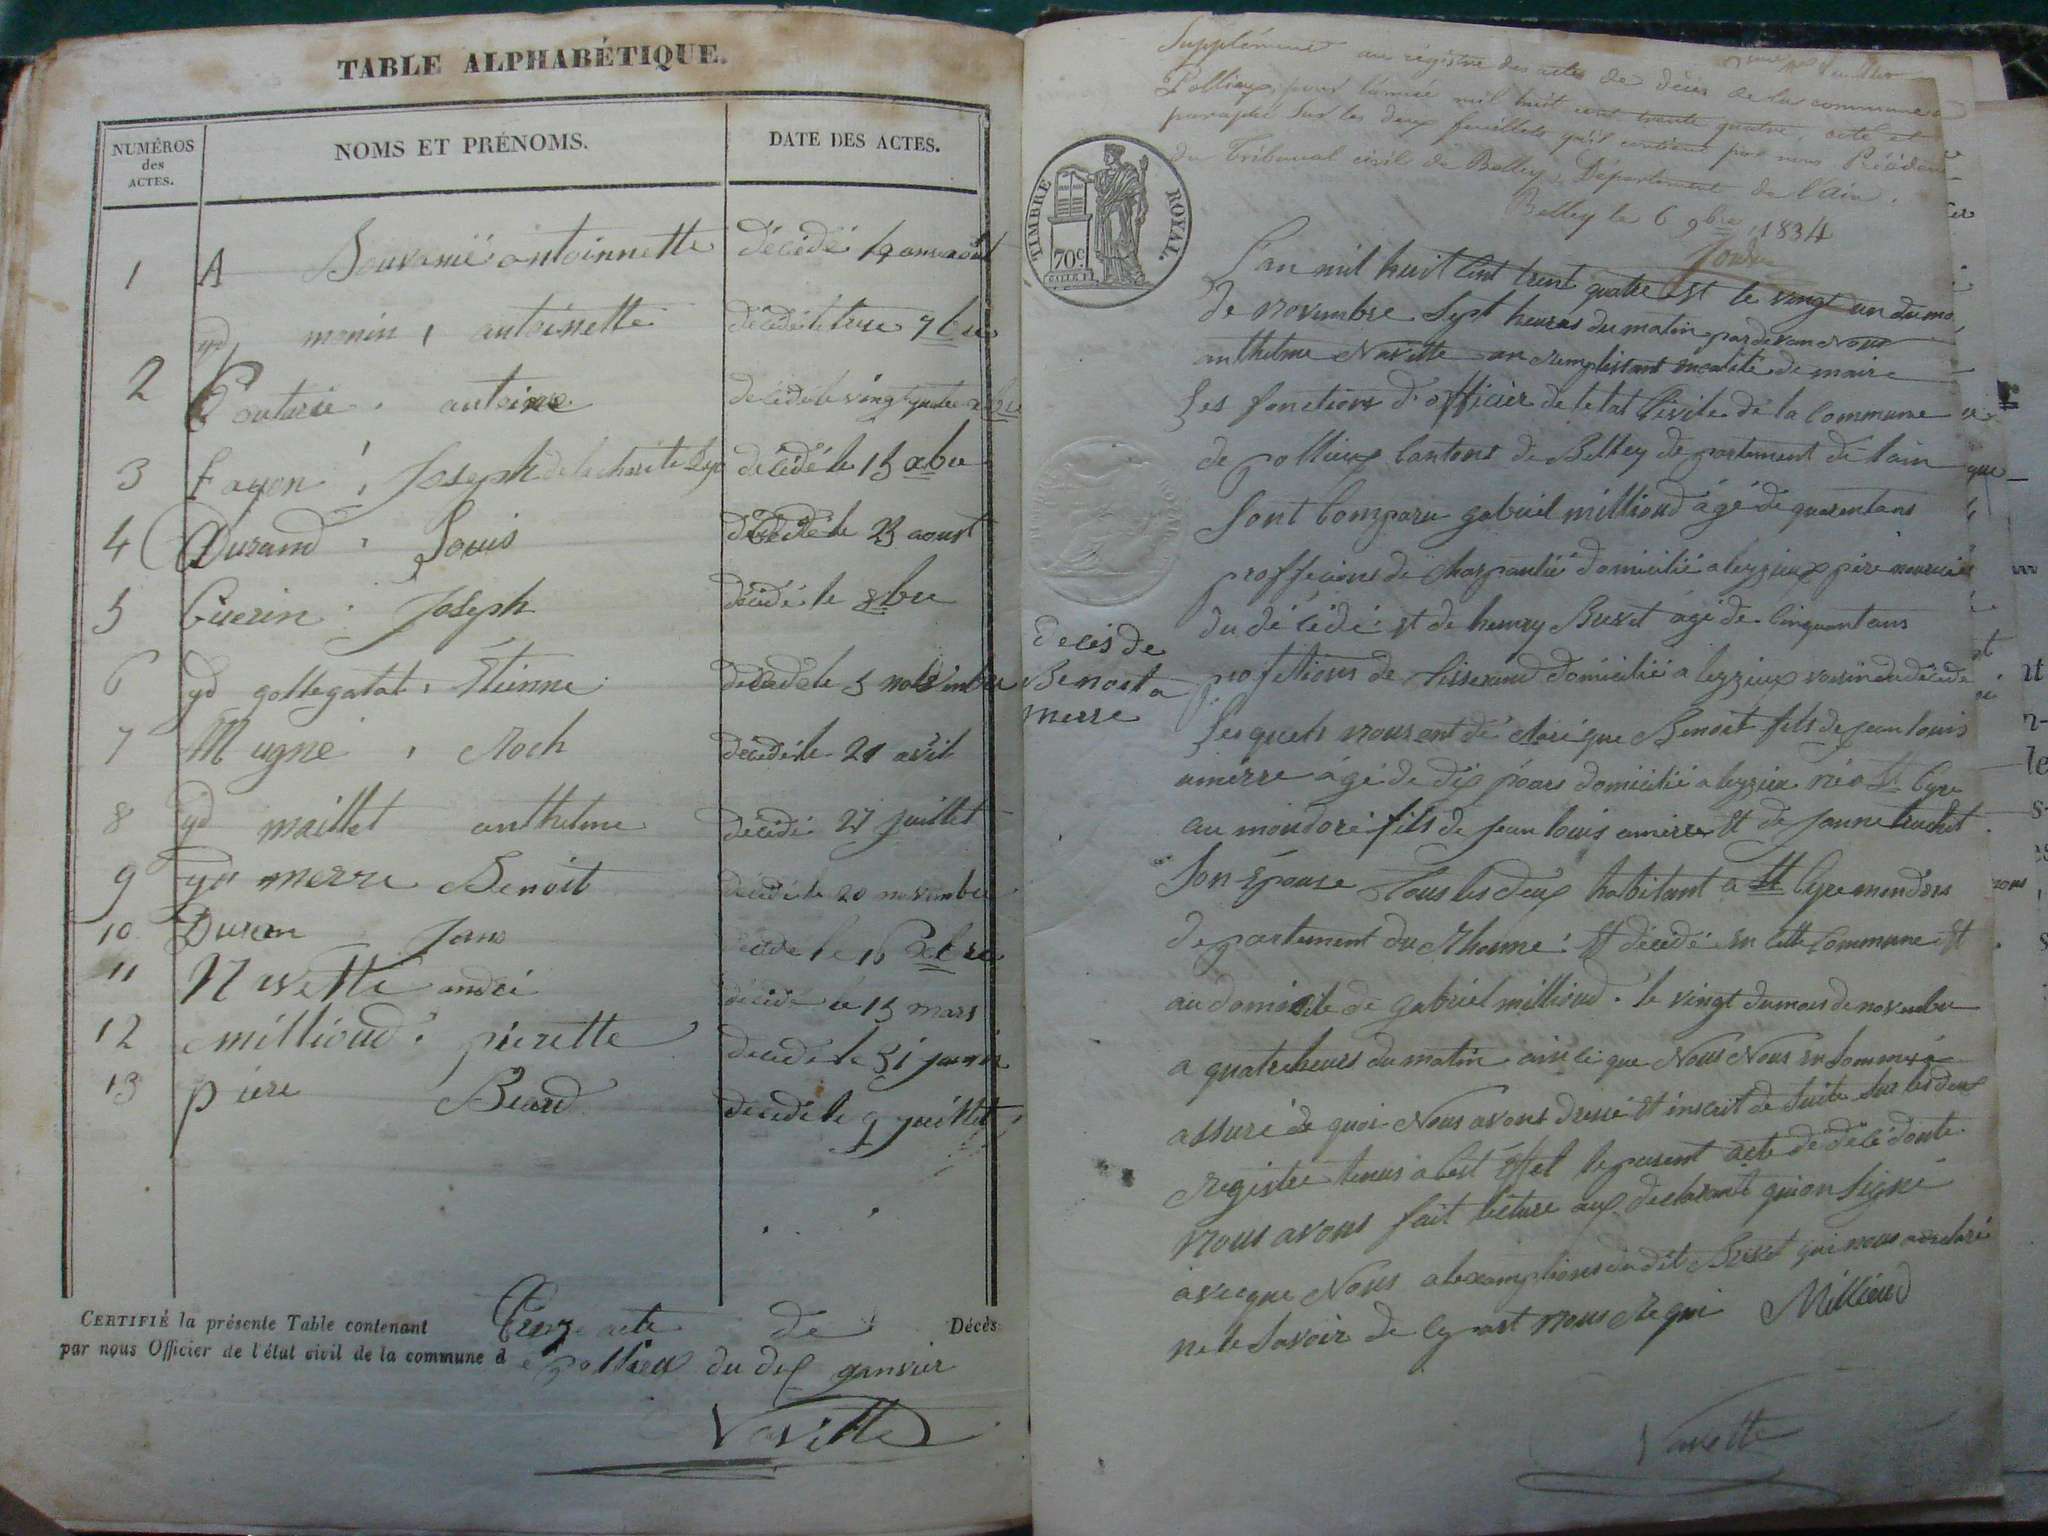 TABLE ALPHABÉTIQUE.
NUMÉROS des ACTES.
NOMS ET PRÉNOMS.
DATE DES ACTES.
1 A antoinnette décédé
yd monin, antoinette décédé le 7bre
2 antoine décédé le vingt quatre
3 fayon, Joseph de la charite décédé le 15
4 Durand, Louis décédé le 23 aoust
5 Guerin. Joseph décédé le 8bre
6 yd gollegatat, Étienne décédé le 5 novembre
7 Mugne, Roch décédé le 21 avril
8 yd maillet anthelme décédé 27 juillet
9 merre Benoit décédé le 20 novembre
10 Duren décédé le 16
11 Navette andré décédé le 15 mars
12 millioud. pierette décédé le 31
13 piere décédé le 9 juillet
CERTIFIÉ la présente Table contenant acte de Décès
par nous Officier de l'état civil de la commune de pollieu du dix janvier
Navette
Supplément au régistre des actes de décès de la commune de
Pollieux, pour l'année mil huit cent trente quatre, coté et
paraphé sur les deux feuillets qu'il contient par nous Président
du Tribunal civil de Belley, Département de l'Ain.
Belley le 6 9bre 1834
TIMBRE ROYAL.
70c.
L'an mil huit cent trent quatre est le vingt un du moi
de novembre sept heures du matin par devan Nous
anthelme Navette an remplissant encalité de maire
Les fonctions d'officier de letat Civile de la Commune
de pollieux Cantons de Belley departement de lain
Sont Comparu gabriel millioud âgé de quarentans
proffecions de charpantié domicilié a leyzieux père nouricié
du décédé et de henry Buret âgé de Cinquantans
profetions de tisserand domicilié a leyzieux voisin du décédé
Lesquels nous ont déclaré que Benoit fils de jean louis
amerre âgé de dix jours domicilié a leyzieu né a St Cyre
au mondore fils de jean louis amerre et de janne truchet
Son Épouse Tous les deux habitant a St Cyre mondore
departement du Rhonne: et décédé en cette Commune et
au domicile de gabriel millioud. le vingt du mois de novembre
a quatre heures du matin ainci que Nous Nous en sommes
assuré de quoi Nous avons dressé et inscrit de suite sur les deux
registre tenus a cest effet le present acte de décé donte
nous avons fait lecture aux declarant qui on signé
avecque Nous a lexamptions dudit Buret qui nous a declaré
ne le savoir de ce nous Requi Millioud
Navette
Decés de
Benoit a
merre